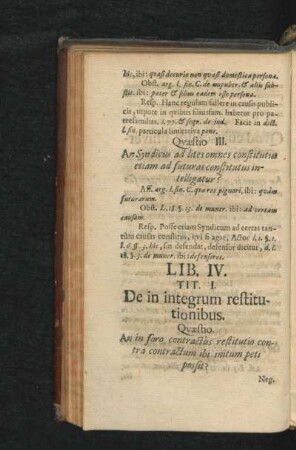 hîc, ibi: quasi decurio non quasi domestica persona.
Obst. arg. l. fin. C. de impuber. & aliis sub-
stit. ibi: pater & filius eadem esse persona.
Resp. Hanc regulam fallere in causis publi-
cis, utpote in qvibus filiusfam. habetur pro pa-
trefamilias, l. 77. & seqv. de jud. Facit in dict.
l. fin. particula limitativa penè.
Qvæstio III.
An Syndicus ad lites omnes constitutus
etiam ad futuras constitutus in-
telligatur?
Aff. arg. l. fin. C. qvæ res pignori, ibi: qvàm
futurarum.
Obst. L. 18. §. 13. de muner. ibi: ad certam
causam.
Resp. Posse etiam Syndicum ad certas tan-
tùm causas constitui, qvi si agat, Actor
hîc, sin defendat, defensor dicitur, d. l.
18. §. 13. de muner. ibi: defensores.
LIB. IV.
TIT. I.
De in integrum restitu-
tionibus.
Qvæstio.
An in foro contractûs restitutio con-
tra contractum ibi initum peti
possit?
Neg.